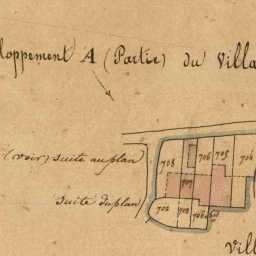 loppement A (Partie) du Villa
(voir) suite au plan
708 706 705 704
707
suite du plan
702 709
Vill